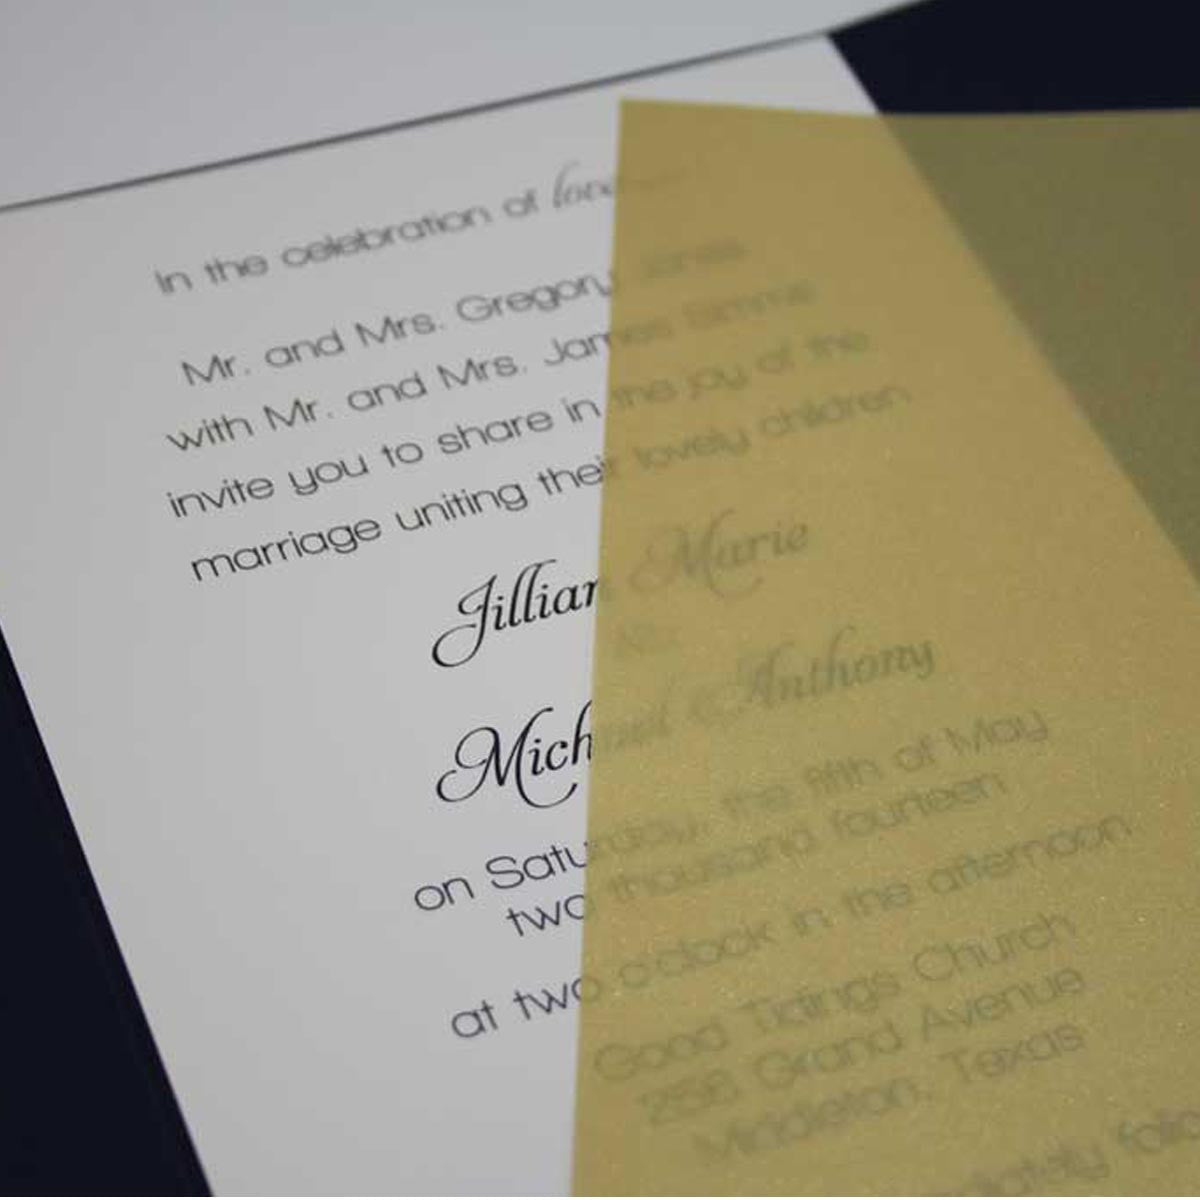 In the celebration of love
Mr. and Mrs. Gregory Jones
with Mr. and Mrs. James Simms
invite you to share in the joy of the
marriage uniting their lovely children
Jillian Marie
Michael Anthony
on Saturday, the fifth of May
two thousand fourteen
at two o'clock in the afternoon
Good Tidings Church
256 Grand Avenue
Middleton, Texas